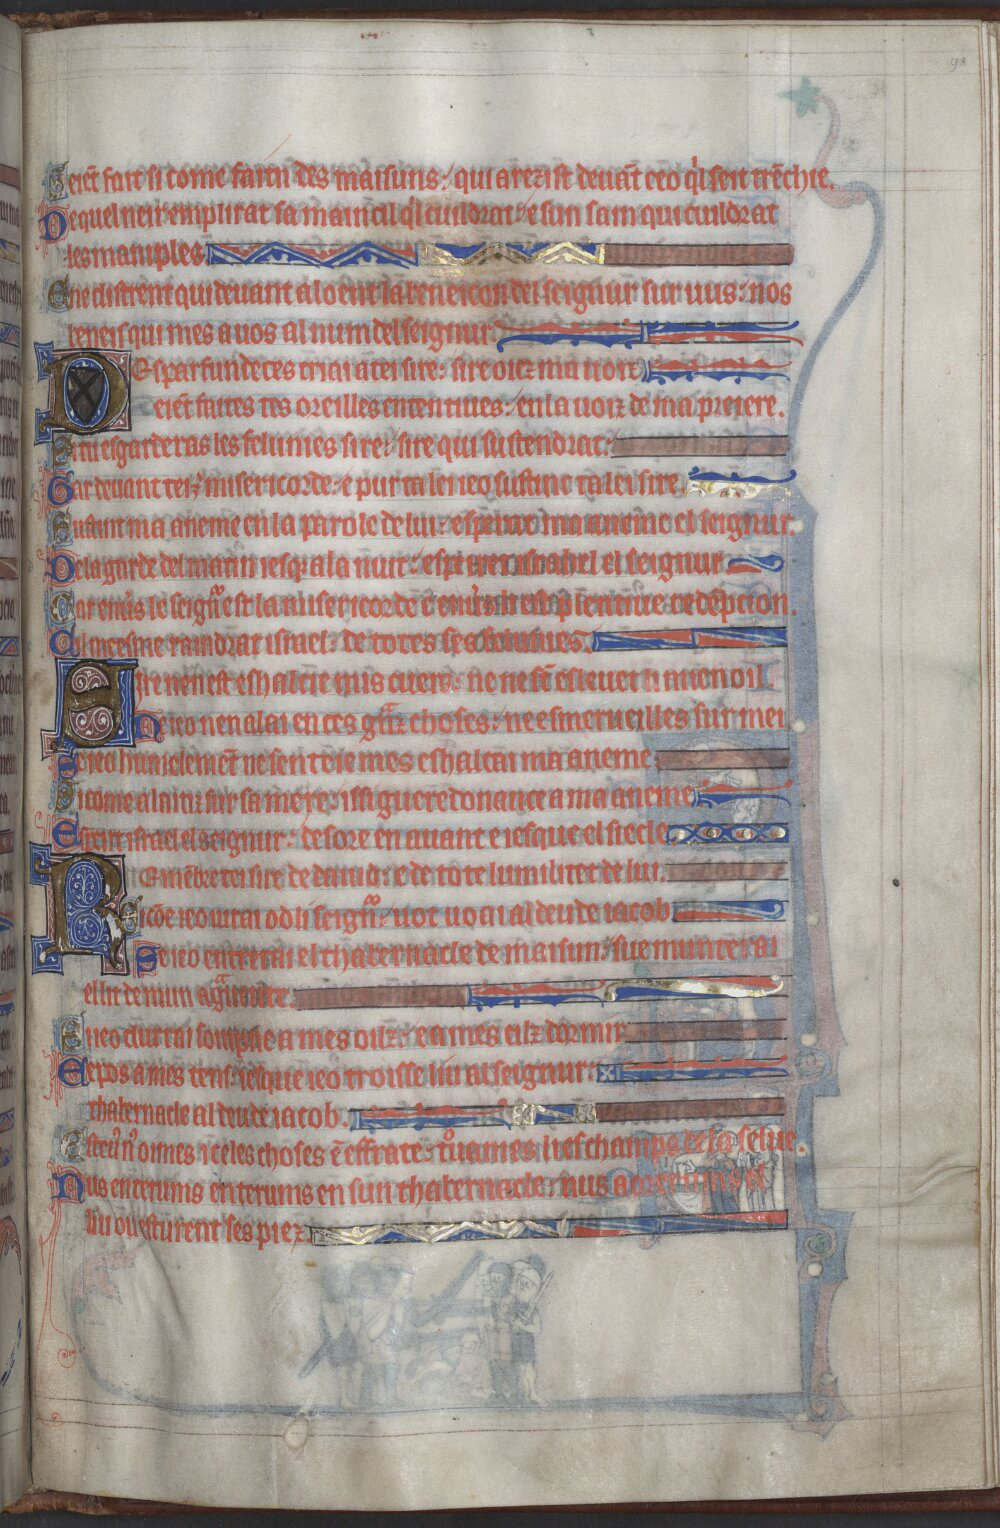 98
Seiēt fait si come farcū des maisuns: qui arezist deuāt ceo q'l seit trēchie.
Dequel neir emplirat sa main cil q'l cuildrat: e sun sain qui cuildrat
les maniples.
Ene distrent qui deuant aloent la beneicon del seignur sur uus: nos
beneis qui mes a uos al num del seignur.
DEs parfundeces criai a tei sire: sire oiez ma uoiz.
Seiēt faites tes oreilles ententiues: en la uoiz de ma preiere.
Si tu esgarderas les felunies sire: sire qui sustendrat.
Car deuant tei misericorde: e pur ta lei ieo sustinc ta lei sire.
Sustint ma aneme en la parole de lui: esperat ma aneme el seignur.
De la garde del matin iesqu a la nuit: espeirer israhel el seignur.
Car enuers le seignr est la misericorde: e enuers lui est plentiue redēpcion.
Cil meesme raindrat israel: de totes ses felunies.
SIre nen est eshalcie mis cuers: ne ne sūt esleuet li mien oil.
Ne ieo nen alai en ces grāz choses: ne es merueilles sur mei
Se ieo humelemēt ne senteie mes eshalcai ma aneme.
Si come alaitiz sur sa mere: issi gueredonance a ma aneme
Espeirt israel el seignur: desore en auant e iesque el siecle.
REmēbre tei sire de dauid: e de tote lumiliter de lui.
Sicōe ieo iurai od li seignr: uot uoai al deu de iacob
Se ieo enterrai el thabernacle de maisun: sue muntērai
el lit de mun agrauite.
Si ieo durrai sompne a mes oilz: e a mes cilz dormir
E repos a mes tens: iesque ieo troisse liu al seignur:
thabernacle al deu de iacob.
Estreu n' oimes iceles choses ē effrate: trouames li es champs de la selue.
Nus enterums enterums en sun thabernacle: nus aorerums el
liu ou esturent ses piez.